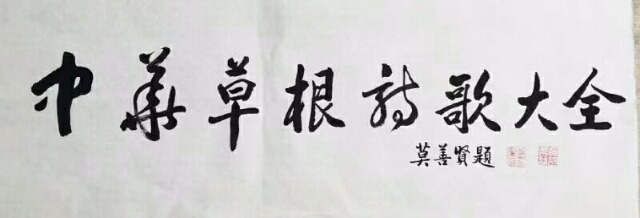 中華草根诗歌大全
莫善賢題